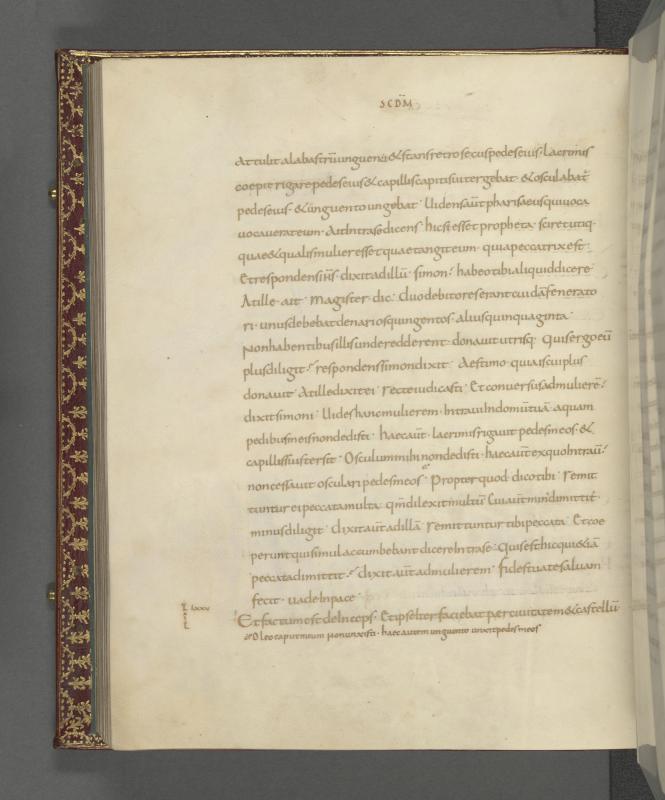 SCDM
Attulit alabastrū unguenti & stans retro secus pedes eius · Lacrimis
coepit rigare pedes eius & capillis capitis sui tergebat · & osculabat
pedes eius · & unguento ungebat · Videns aūt pharisaeus qui uoca
uocauerat eum · Ait intra se dicens · hic si esset propheta · sciret utiq ·
quae & qualis mulier esset quae tangit eum · quia peccatrix est ·
Et respondens ihs · dixit ad illū · simon · habeo tibi aliquid dicere ·
At ille · ait · Magister · dic · duo debitores erant cuidā fenerato
ri · unus debebat denarios quingentos · alius quinquaginta ·
Non habentibus illis unde redderent · donauit utrisq · Quis ergo eū
plus diligit · respondens simon dixit · Aestimo · quia is cui plus
donauit · At ille dixit ei · recte iudicasti · Et conuersus ad mulierē ·
dixit simoni · Uides hanc mulierem · Intraui In domū tuā · aquam
pedibus meis non dedisti · haec aūt · lacrimis rigauit pedes meos · &
capillis suis tersit · Osculum mihi non dedisti · haec aūt ex quo Intrauit
non cessauit osculari pedes meos · Propter quod · dico tibi · remit
tuntur ei peccata multa · qm̄ dilexit multū · Cui aūt min' dimittit
minus diligit · dixit aūt ad illā · remittuntur tibi peccata · Et coe
perunt qui simul accumbebant dicere Intra se · Quis est hic qui & iā
peccata dimittit · dixit aūt ad mulierem · fides tua te saluam
fecit · uade In pace ·
lxxv
Et factum est deInceps · Et ipse Iter faciebat per ciuitatem & castellū
Oleo caput meum non unxisti · haec autem unguento unxit pedes meos